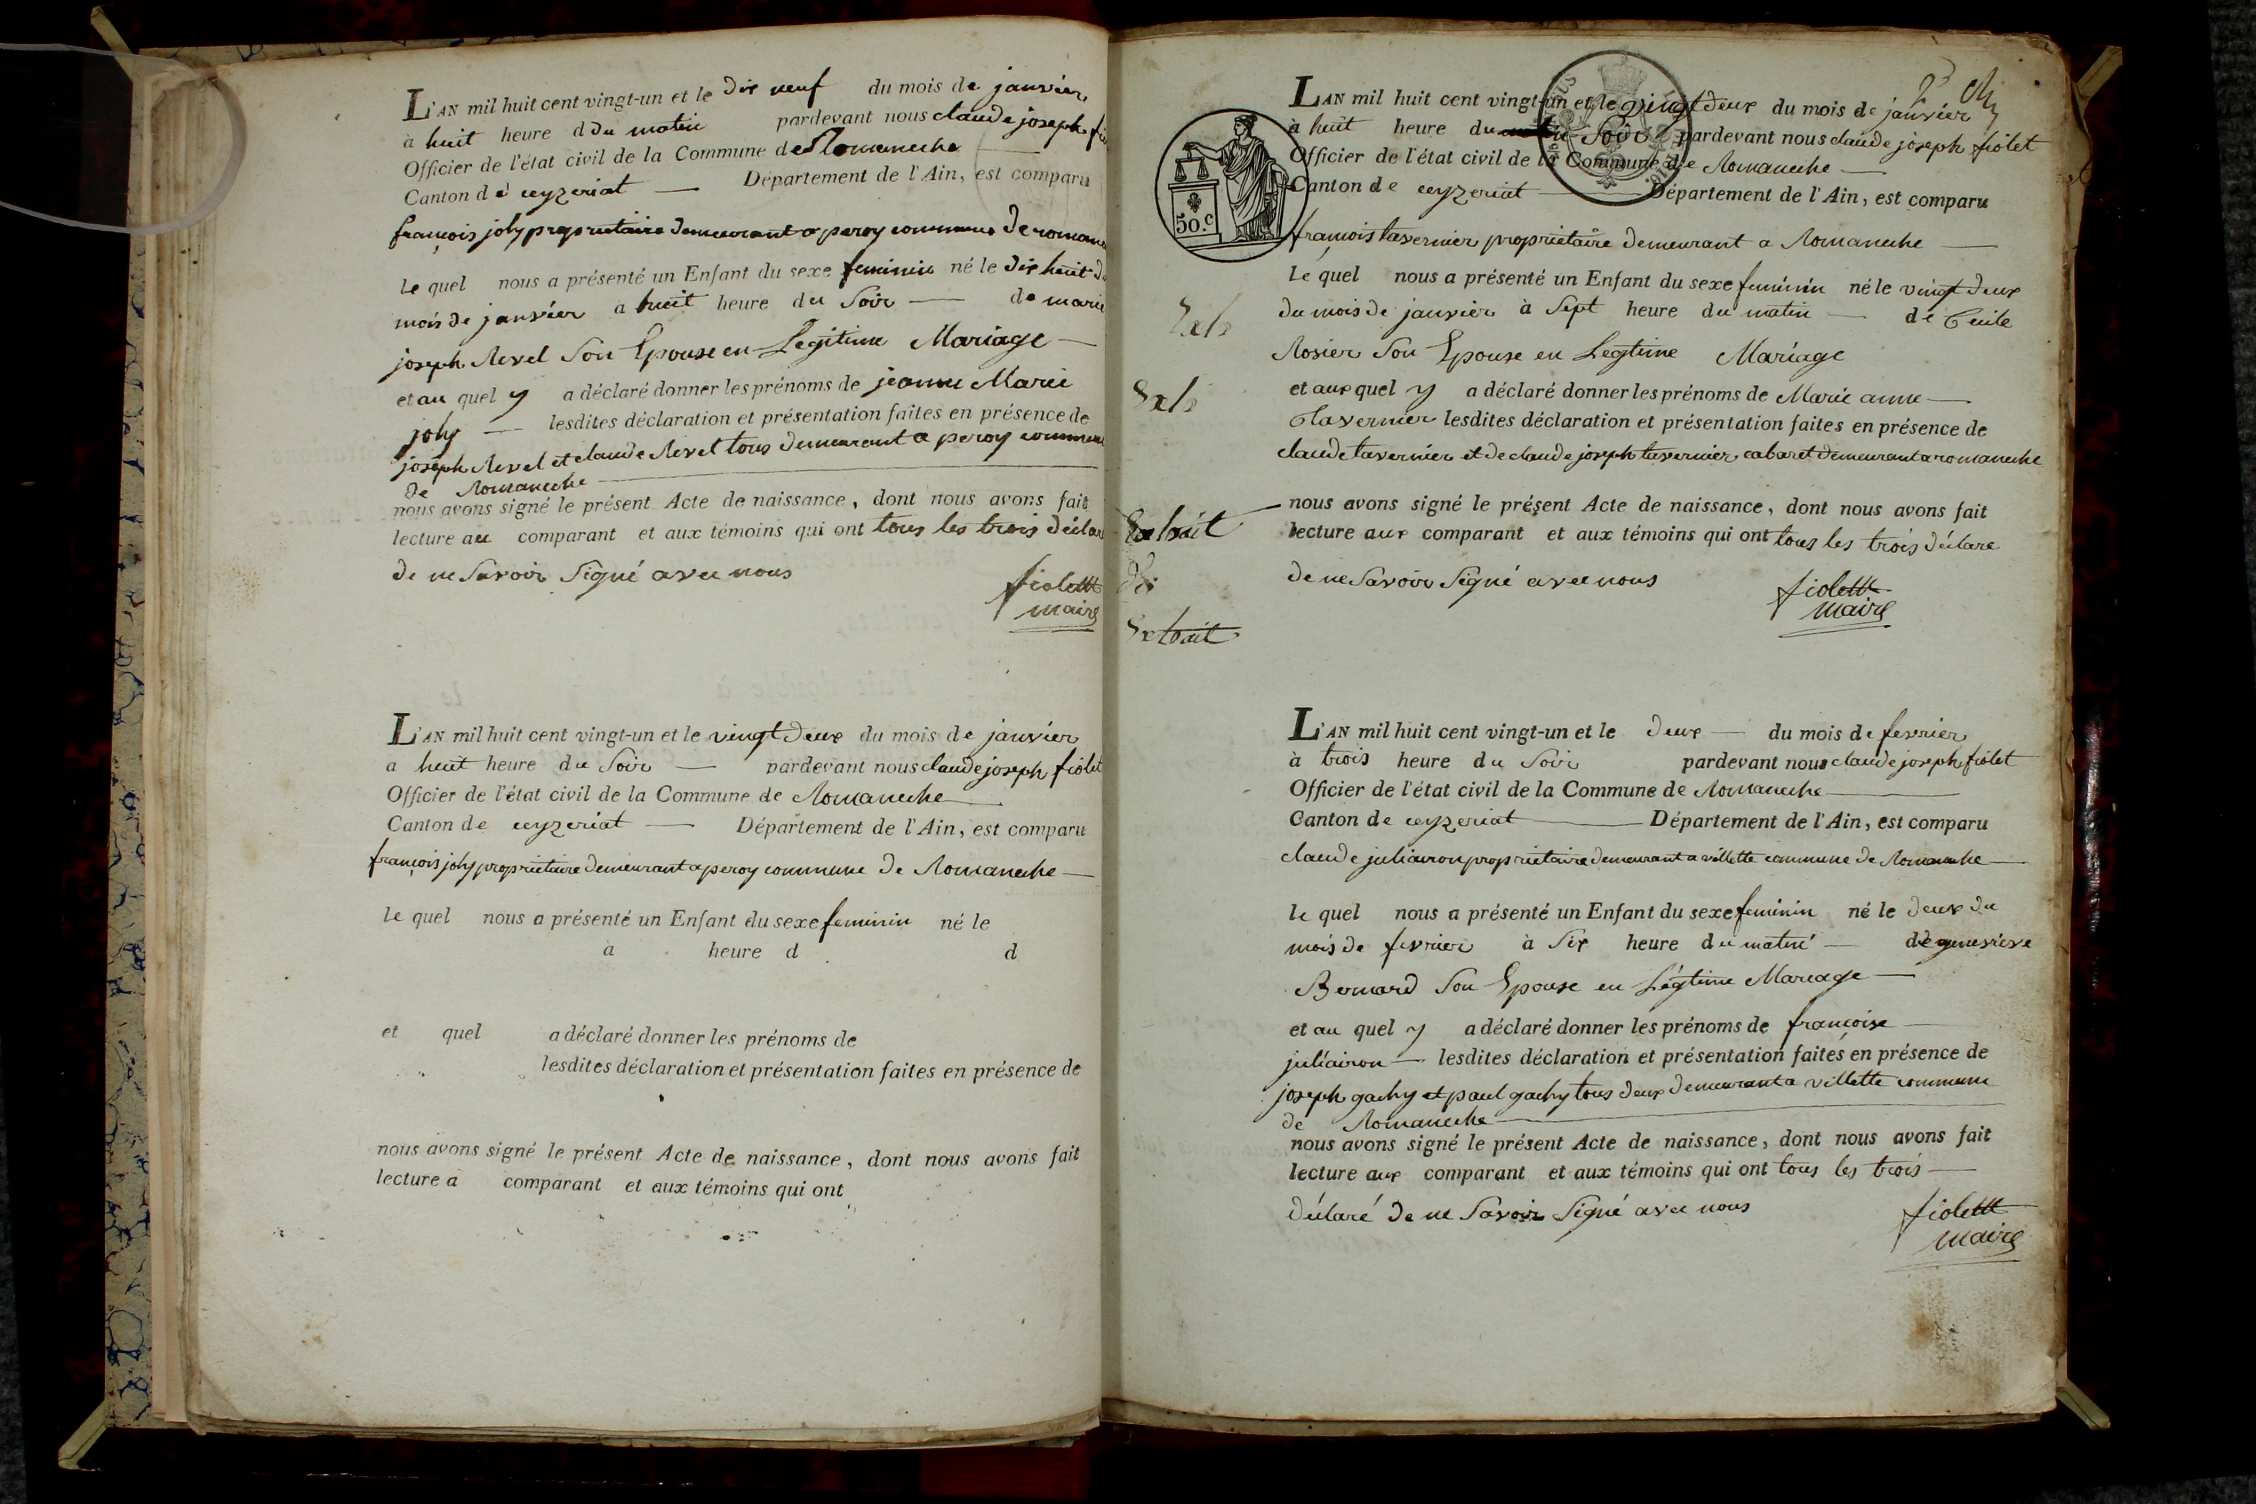 L'AN mil huit cent vingt-un et le dix neuf du mois de janvier
à huit heure d du matin pardevant nous claude joseph
Officier de l'état civil de la Commune de Romaneche
Canton de ceyzeriat Département de l'Ain, est comparu
françois joly proprietaire demeurant a peroy commune de romane
le quel nous a présenté un Enfant du sexe feminin né le dix huit d
mois de janvier a huit heure du Soir de marie
joseph Revel Son Epouse en Legitime Mariage
et au quel y a déclaré donner les prénoms de jeanne Marie
joly lesdites déclaration et présentation faites en présence de
joseph Revel et claude Revel tous demeurant a peroy commune
de Romaneche
nous avons signé le présent Acte de naissance, dont nous avons fait
lecture au comparant et aux témoins qui ont tous les trois déclar
de ne Savoir Signé avec nous
fiolett
maire
L'AN mil huit cent vingt-un et le vingt deux du mois de janvier
a huit heure du Soir pardevant nous claude joseph fiolet
Officier de l'état civil de la Commune de Romaneche
Canton de ceyzeriat Département de l'Ain, est comparu
françois joly proprietaire demeurant a peroy commune de Romaneche
le quel nous a présenté un Enfant du sexe feminin né le
à heure d d
et quel a déclaré donner les prénoms de
lesdites déclaration et présentation faites en présence de
nous avons signé le présent Acte de naissance, dont nous avons fait
lecture a comparant et aux témoins qui ont
50.c
L'AN mil huit cent vingt-un et le vingt deux du mois de janvier
à huit heure du Soir pardevant nous claude joseph fiolet
Officier de l'état civil de la Commune de Romaneche
Canton de ceyzeriat Département de l'Ain, est comparu
françois tavernier proprietaire demeurant a Romaneche
le quel nous a présenté un Enfant du sexe feminin né le vingt deux
du mois de janvier à Sept heure du matin de Cecile
Rosier Son Epouse en Legtime Mariage
et aux quel y a déclaré donner les prénoms de Marie anne
tavernier lesdites déclaration et présentation faites en présence de
claude tavernier et de claude joseph tavernier cabaret demeurant a romaneche
nous avons signé le présent Acte de naissance, dont nous avons fait
lecture aux comparant et aux témoins qui ont tous les trois déclare
de ne Savoir Signé avec nous
fiolett
maire
Extrait
Extrait
L'AN mil huit cent vingt-un et le deux du mois de fevrier
à trois heure du Soir pardevant nous claude joseph fiolet
Officier de l'état civil de la Commune de Romaneche
Canton de ceyzeriat Département de l'Ain, est comparu
claude juliairon proprietaire demeurant a villette commune de Romaneche
le quel nous a présenté un Enfant du sexe feminin né le deux du
mois de fevrier à Six heure du matin de genevieve
Bernard Son Epouse en Légtime Mariage
et au quel y a déclaré donner les prénoms de françoise
juliairon lesdites déclaration et présentation faites en présence de
joseph gachy et paul gachy tous deux demeurant a villette commune
de Romaneche
nous avons signé le présent Acte de naissance, dont nous avons fait
lecture aux comparant et aux témoins qui ont tous les trois
déclaré de ne Savoir Signé avec nous
fiolett
maire